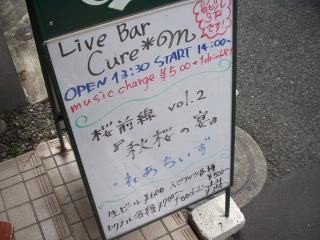 Live Bar
Cure*m
当ビル
3F
です!
OPEN 13:30 START 14:00~
music charge ¥500+1drink
桜前線 vol.2
『秋桜の宴』
れあちいず
生ビール¥600
カクテル各種¥700
Food